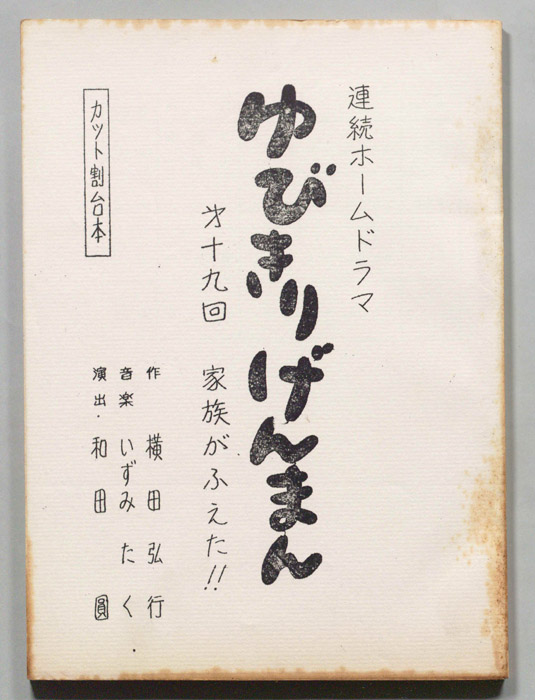 連続ホームドラマ
ゆびきりげんまん
第十九回 家族がふえた!!
作 横田弘行
音楽 いずみたく
演出・和田 圓
カット割台本